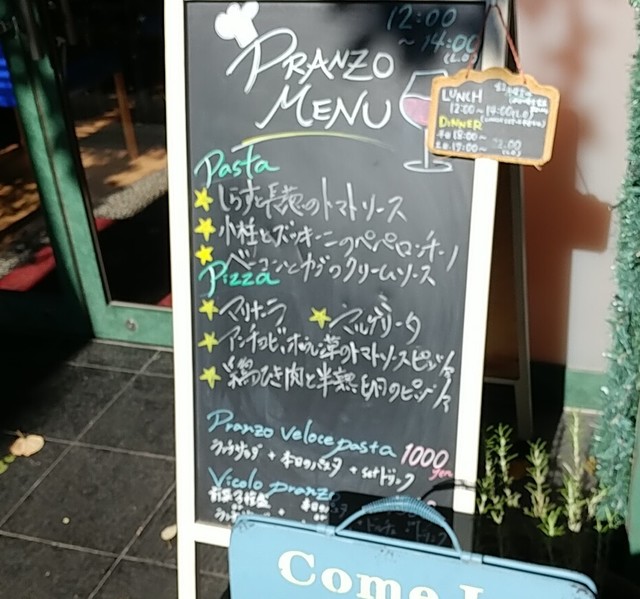 12:00
~14:00
(L.O)
PRANZO
MENU
LUNCH
12:00~14:00(L.O)
DINNER
18:00~
17:00~
(L.O)
Pasta
しらすと長葱のトマトソース
小柱とズッキーニのペペロンチーノ
ベーコンとカブのクリームソース
Pizza
マリナーラ
マルゲリータ
アンチョビ、ホウレン草のトマトソースピッツァ
鶏ひき肉と半熟卵のピッツァ
Pranzo Veloce pasta 1000 yen
+ 本日のパスタ + setドリンク
Vicolo pranzo
Come